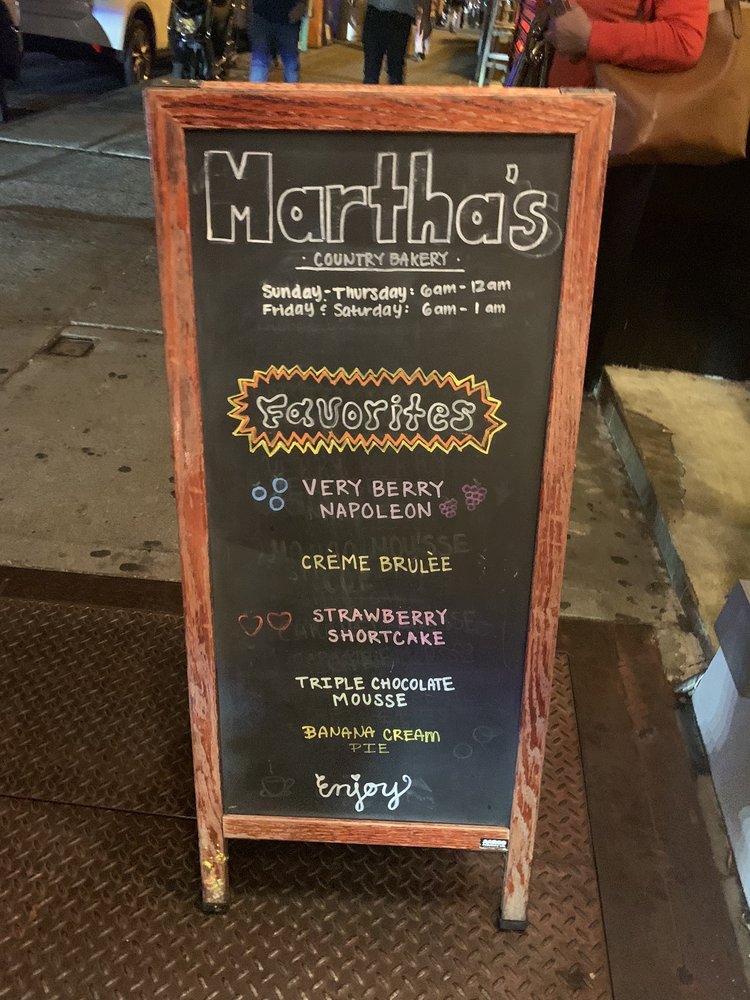 Martha's
· COUNTRY BAKERY ·
Sunday-Thursday: 6am-12am
Friday & Saturday: 6am-1am
Favorites
VERY BERRY
NAPOLEON
CRÈME BRULÈE
STRAWBERRY
SHORTCAKE
TRIPLE CHOCOLATE
MOUSSE
BANANA CREAM
PIE
Enjoy